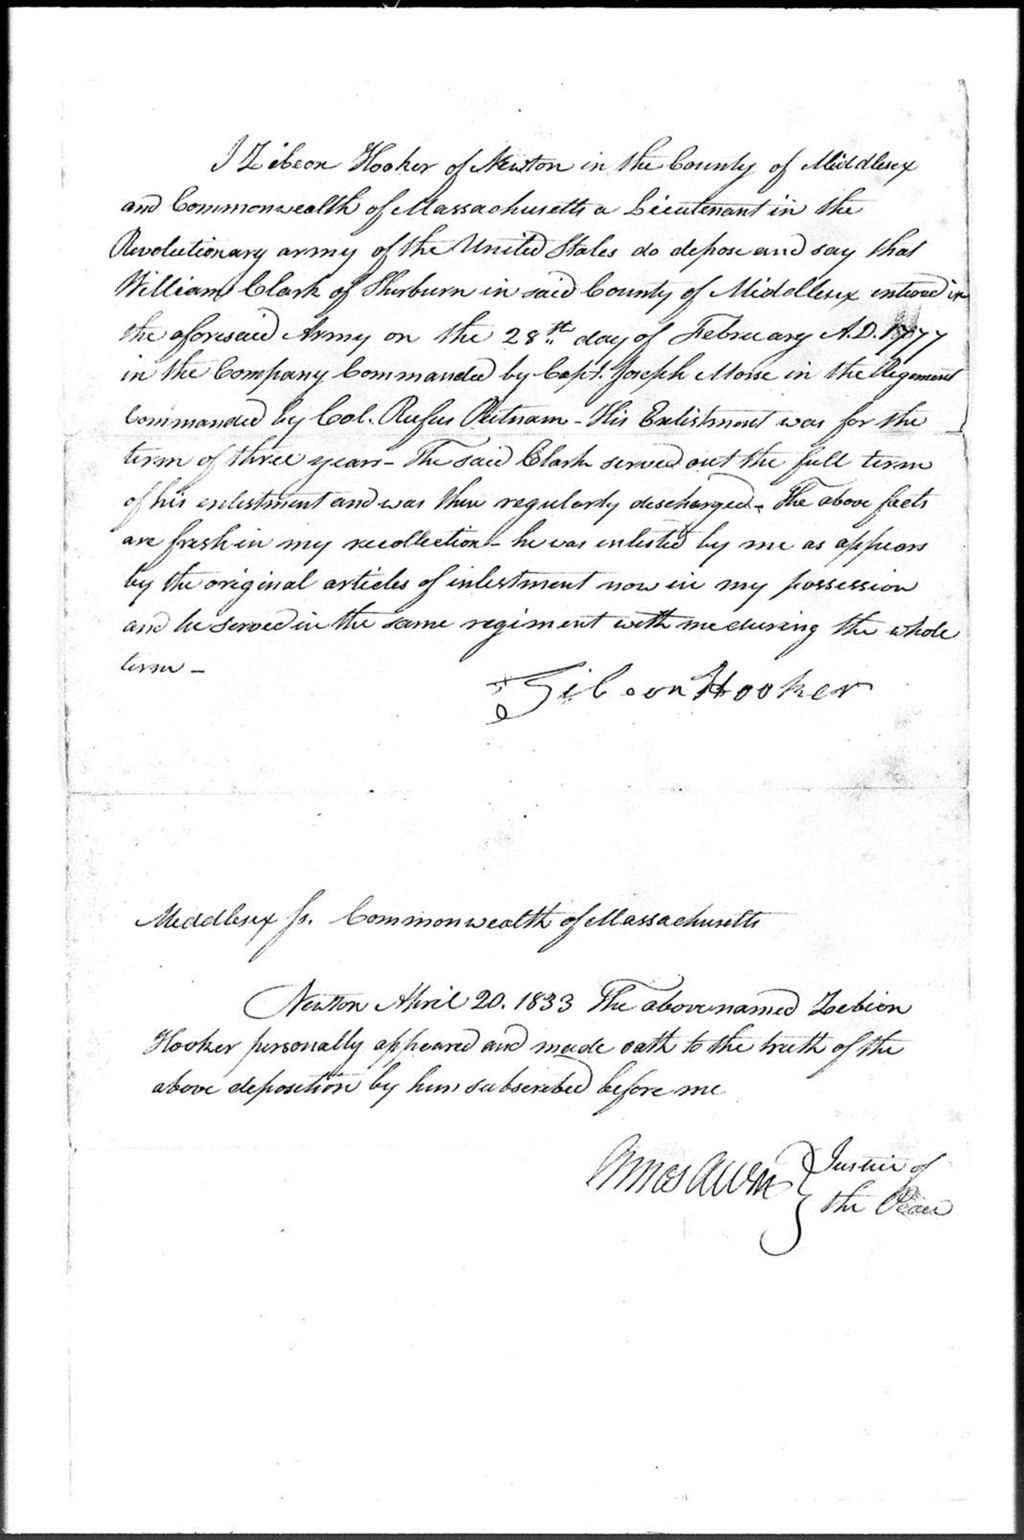 I Zibeon Hooker of Newton in the County of Middlesex
and Commonwealth of Massachusetts a Lieutenant in the
Revolutionary army of the United States do depose and say that
William Clark of Sherburn in said County of Middlesex entered in
the aforesaid Army on the 28th day of February A.D. 1777
in the Company Commanded by Capt. Joseph Morse in the Regiment
Commanded by Col. Rufus Putnam - His Enlistment was for the
term of three years - The said Clark served out the full term
of his enlistment and was then regularly discharged - The above facts
are fresh in my recollection - he was enlisted by me as appears
by the original articles of inlestment now in my possession
and he served in the same regiment with me during the whole
term -
Zibeon Hooker
Middlesex ss. Commonwealth of Massachusetts
Newton April 20. 1833 The above named Zebion
Hooker personally appeared and made oath to the truth of the
above deposition by him subscribed before me
Amos Allen } Justice of
the Peace